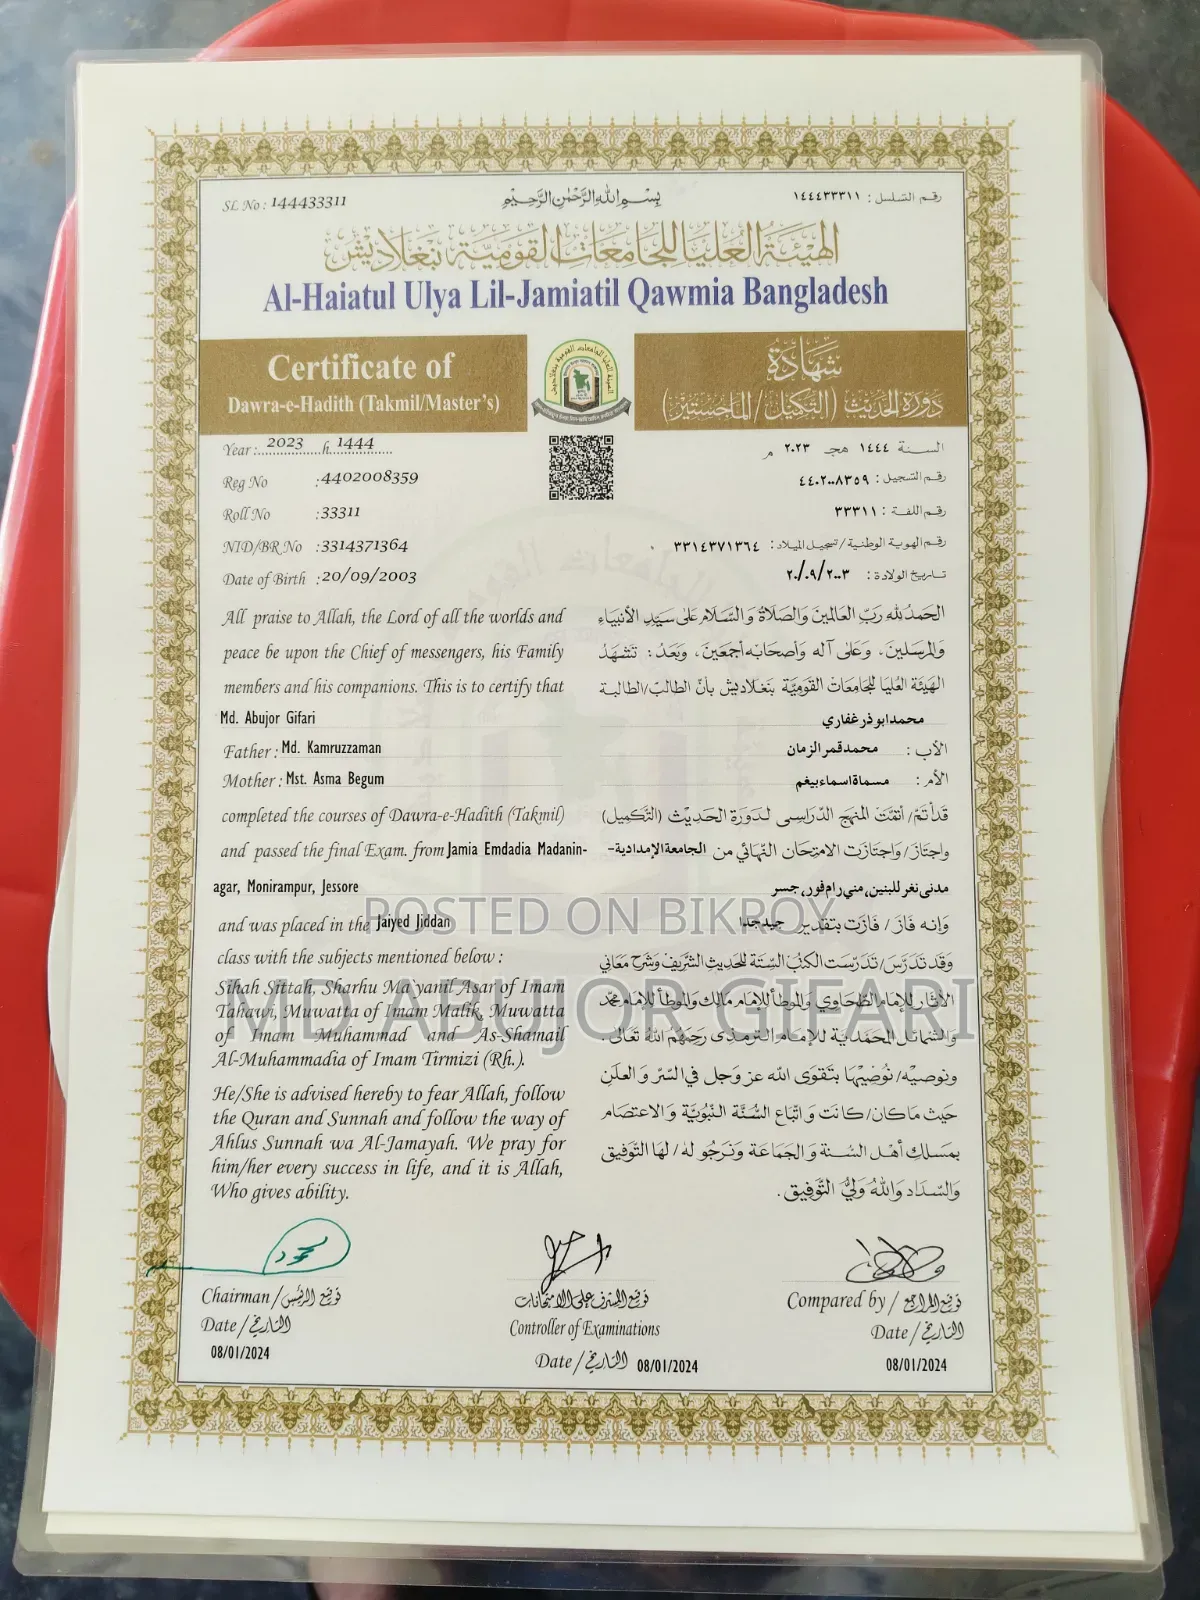 SL No : 144433311
بِسْمِ اللهِ الرَّحْمٰنِ الرَّحِيْمِ
رقم التسلسل : ١٤٤٤٣٣٣١١
الهيئة العليا للجامعات القومية بنغلاديش
Al-Haiatul Ulya Lil-Jamiatil Qawmia Bangladesh
Certificate of
Dawra-e-Hadith (Takmil/Master's)
شهادة
دورة الحديث (التكميل/الماجستير)
Year :.. 2023 h 1444
السنة ١٤٤٤ هجـ ٢٠٢٣ م
Reg No :4402008359
رقم التسجيل : ٤٤٠٢٠٠٨٣٥٩
Roll No :33311
رقم اللفة : ٣٣٣١١
NID/BR No :3314371364
رقم الهوية الوطنية/تسجيل الميلاد: ٣٣١٤٣٧١٣٦٤
Date of Birth :20/09/2003
تاريخ الولادة : ٢٠/٠٩/٢٠٠٣
All praise to Allah, the Lord of all the worlds and
peace be upon the Chief of messengers, his Family
members and his companions. This is to certify that
Md. Abujor Gifari
Father : Md. Kamruzzaman
Mother : Mst. Asma Begum
completed the courses of Dawra-e-Hadith (Takmil)
and passed the final Exam. from Jamia Emdadia Madanin-
agar, Monirampur, Jessore
and was placed in the Jaiyed Jiddan
class with the subjects mentioned below :
Sihah Sittah, Sharhu Ma'yanil Asar of Imam
Tahawi, Muwatta of Imam Malik, Muwatta
of Imam Muhammad and As-Shamail
Al-Muhammadia of Imam Tirmizi (Rh.).
He/She is advised hereby to fear Allah, follow
the Quran and Sunnah and follow the way of
Ahlus Sunnah wa Al-Jamayah. We pray for
him/her every success in life, and it is Allah,
Who gives ability.
الحمد لله رب العالمين والصلاة والسلام على سيد الأنبياء
والمرسلين، وعلى آله وأصحابه أجمعين، وبعد : تشهد
الهيئة العليا للجامعات القومية بنغلاديش بأن الطالب/الطالبة
محمد ابوذر غفاري
الأب : محمد قمر الزمان
الأم : مسماة اسماء بيغم
قد أتم/ أتمت المنهج الدراسى لدورة الحديث (التكميل)
واجتاز/واجتازت الامتحان النهائي من الجامعة الإمدادية-
مدنى نغر للبنين، مني رام فور، جسر
وإنه فاز/ فازت بتقدير جيد جدا
وقد تدرس/تدرست الكتب الستة للحديث الشريف وشرح معاني
الآثار للإمام الطحاوي والموطأ للإمام مالك والموطأ للإمام محمد
والشمائل المحمدية للإمام الترمذى رحمهم الله تعالى.
ونوصيه/نوصيها بتقوى الله عز وجل في السر والعلن
حيث ما كان/كانت واتباع السنة النبوية والاعتصام
بمسلك أهل السنة والجماعة ونرجو له/لها التوفيق
والسداد والله ولي التوفيق.
POSTED ON BIKROY
MD ABUJOR GIFARI
Chairman / توقيع الرئيس
Date / التاريخ
08/01/2024
توقيع المشرف على الامتحانات
Controller of Examinations
Date / التاريخ 08/01/2024
Compared by / توقيع المراجع
Date / التاريخ
08/01/2024